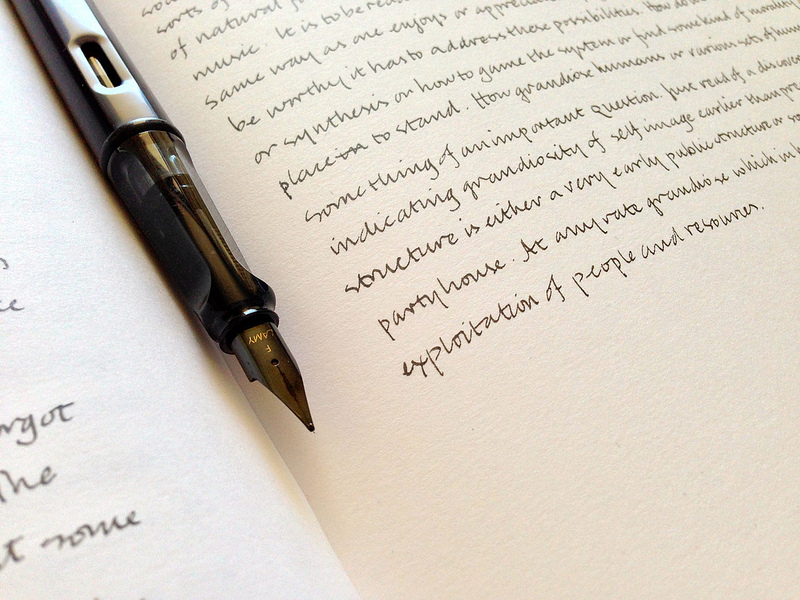 sorts of
of natural fo
music. It is to be read
same way as one enjoys or apprecia
be worthy it has to address these possibilities. How do
or synthesis or how to game the system or find some kind of
place to stand. How grandiose humans or various sets of hum
something of an important question. Just read of a discover
indicating grandiosity of self image earlier than pre
structure is either a very early public structure or
party house. At any rate grandiose which in
exploitation of people and resources.
rgot
The
t some
LAMY
F